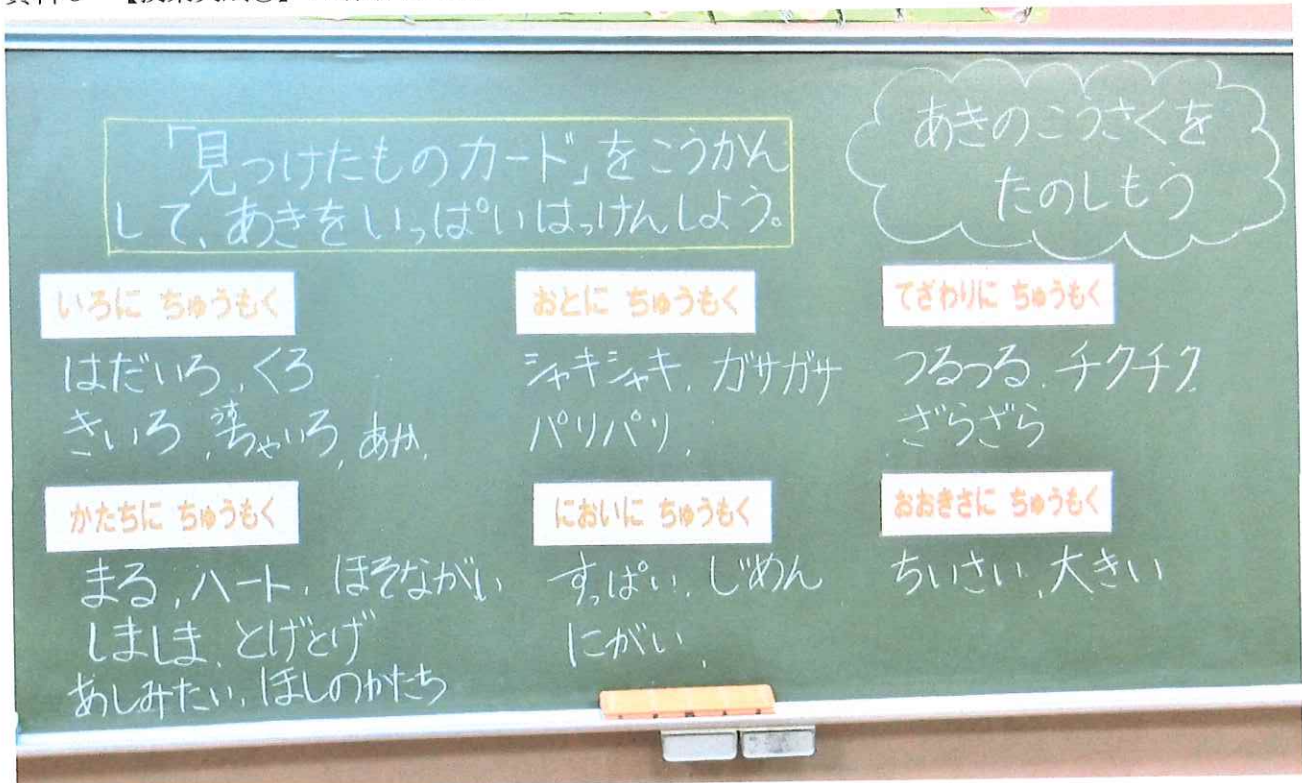 「見つけたものカード」をこうかん
して、あきをいっぱいはっけんしよう。
あきのこうさくを
たのしもう
いろに ちゅうもく
はだいろ、くろ
きいろ、うすちゃいろ、あか、
おとに ちゅうもく
シャキシャキ、ガサガサ
パリパリ、
てざわりに ちゅうもく
つるつる、チクチク
ざらざら
かたちに ちゅうもく
まる、ハート、ほそながい
しましま、とげとげ
あしみたい、ほしのかたち
においに ちゅうもく
すっぱい、じめん
にがい、
おおきさに ちゅうもく
ちいさい、大きい